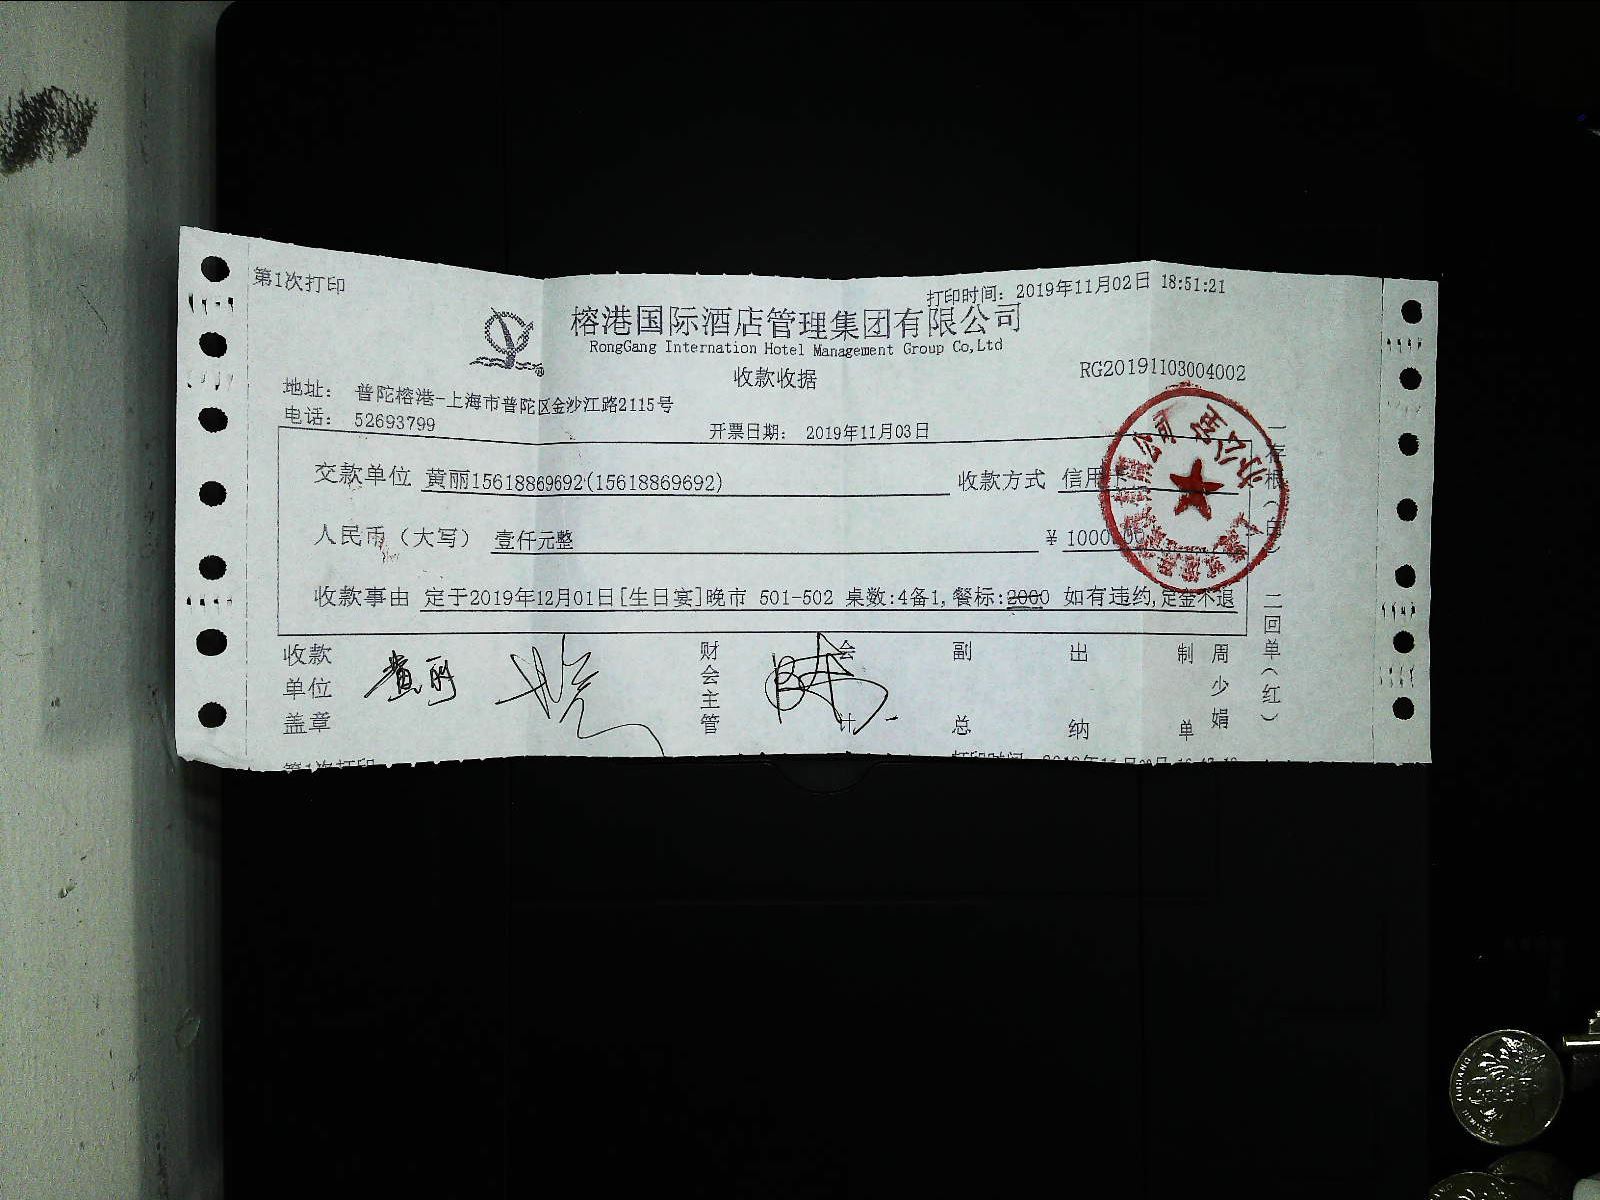 第1次打印
打印时间：2019年11月02日 18:51:21
榕港国际酒店管理集团有限公司
RongGang Internation Hotel Management Group Co,Ltd
收款收据
RG20191103004002
地址： 普陀榕港-上海市普陀区金沙江路2115号
电话： 52693799
开票日期： 2019年11月03日
交款单位 黄丽15618869692(15618869692) 收款方式 信用卡
人民币（大写） 壹仟元整 ¥ 1000.00
收款事由 定于2019年12月01日[生日宴]晚市 501-502 桌数:4备1,餐标:2000 如有违约,定金不退
收款单位盖章 黄丽
财会主管
会计
副总
出纳
制单 周少娟
一存根（白）
二回单（红）
办公室
第1次打印
打印时间